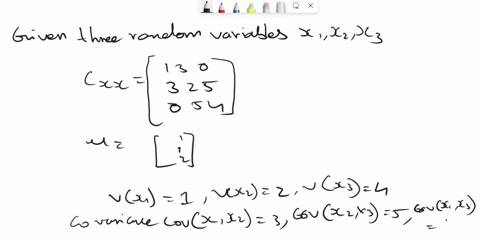 Given three random variables x1, x2, x3
Cxx = [1 3 0
3 2 5
0 5 4]
μ = [1
1
2]
V(x1) = 1, V(x2) = 2, V(x3) = 4
Co variance Cov(x1, x2) = 3, Cov(x2, x3) = 5, Cov(x1, x3)
=